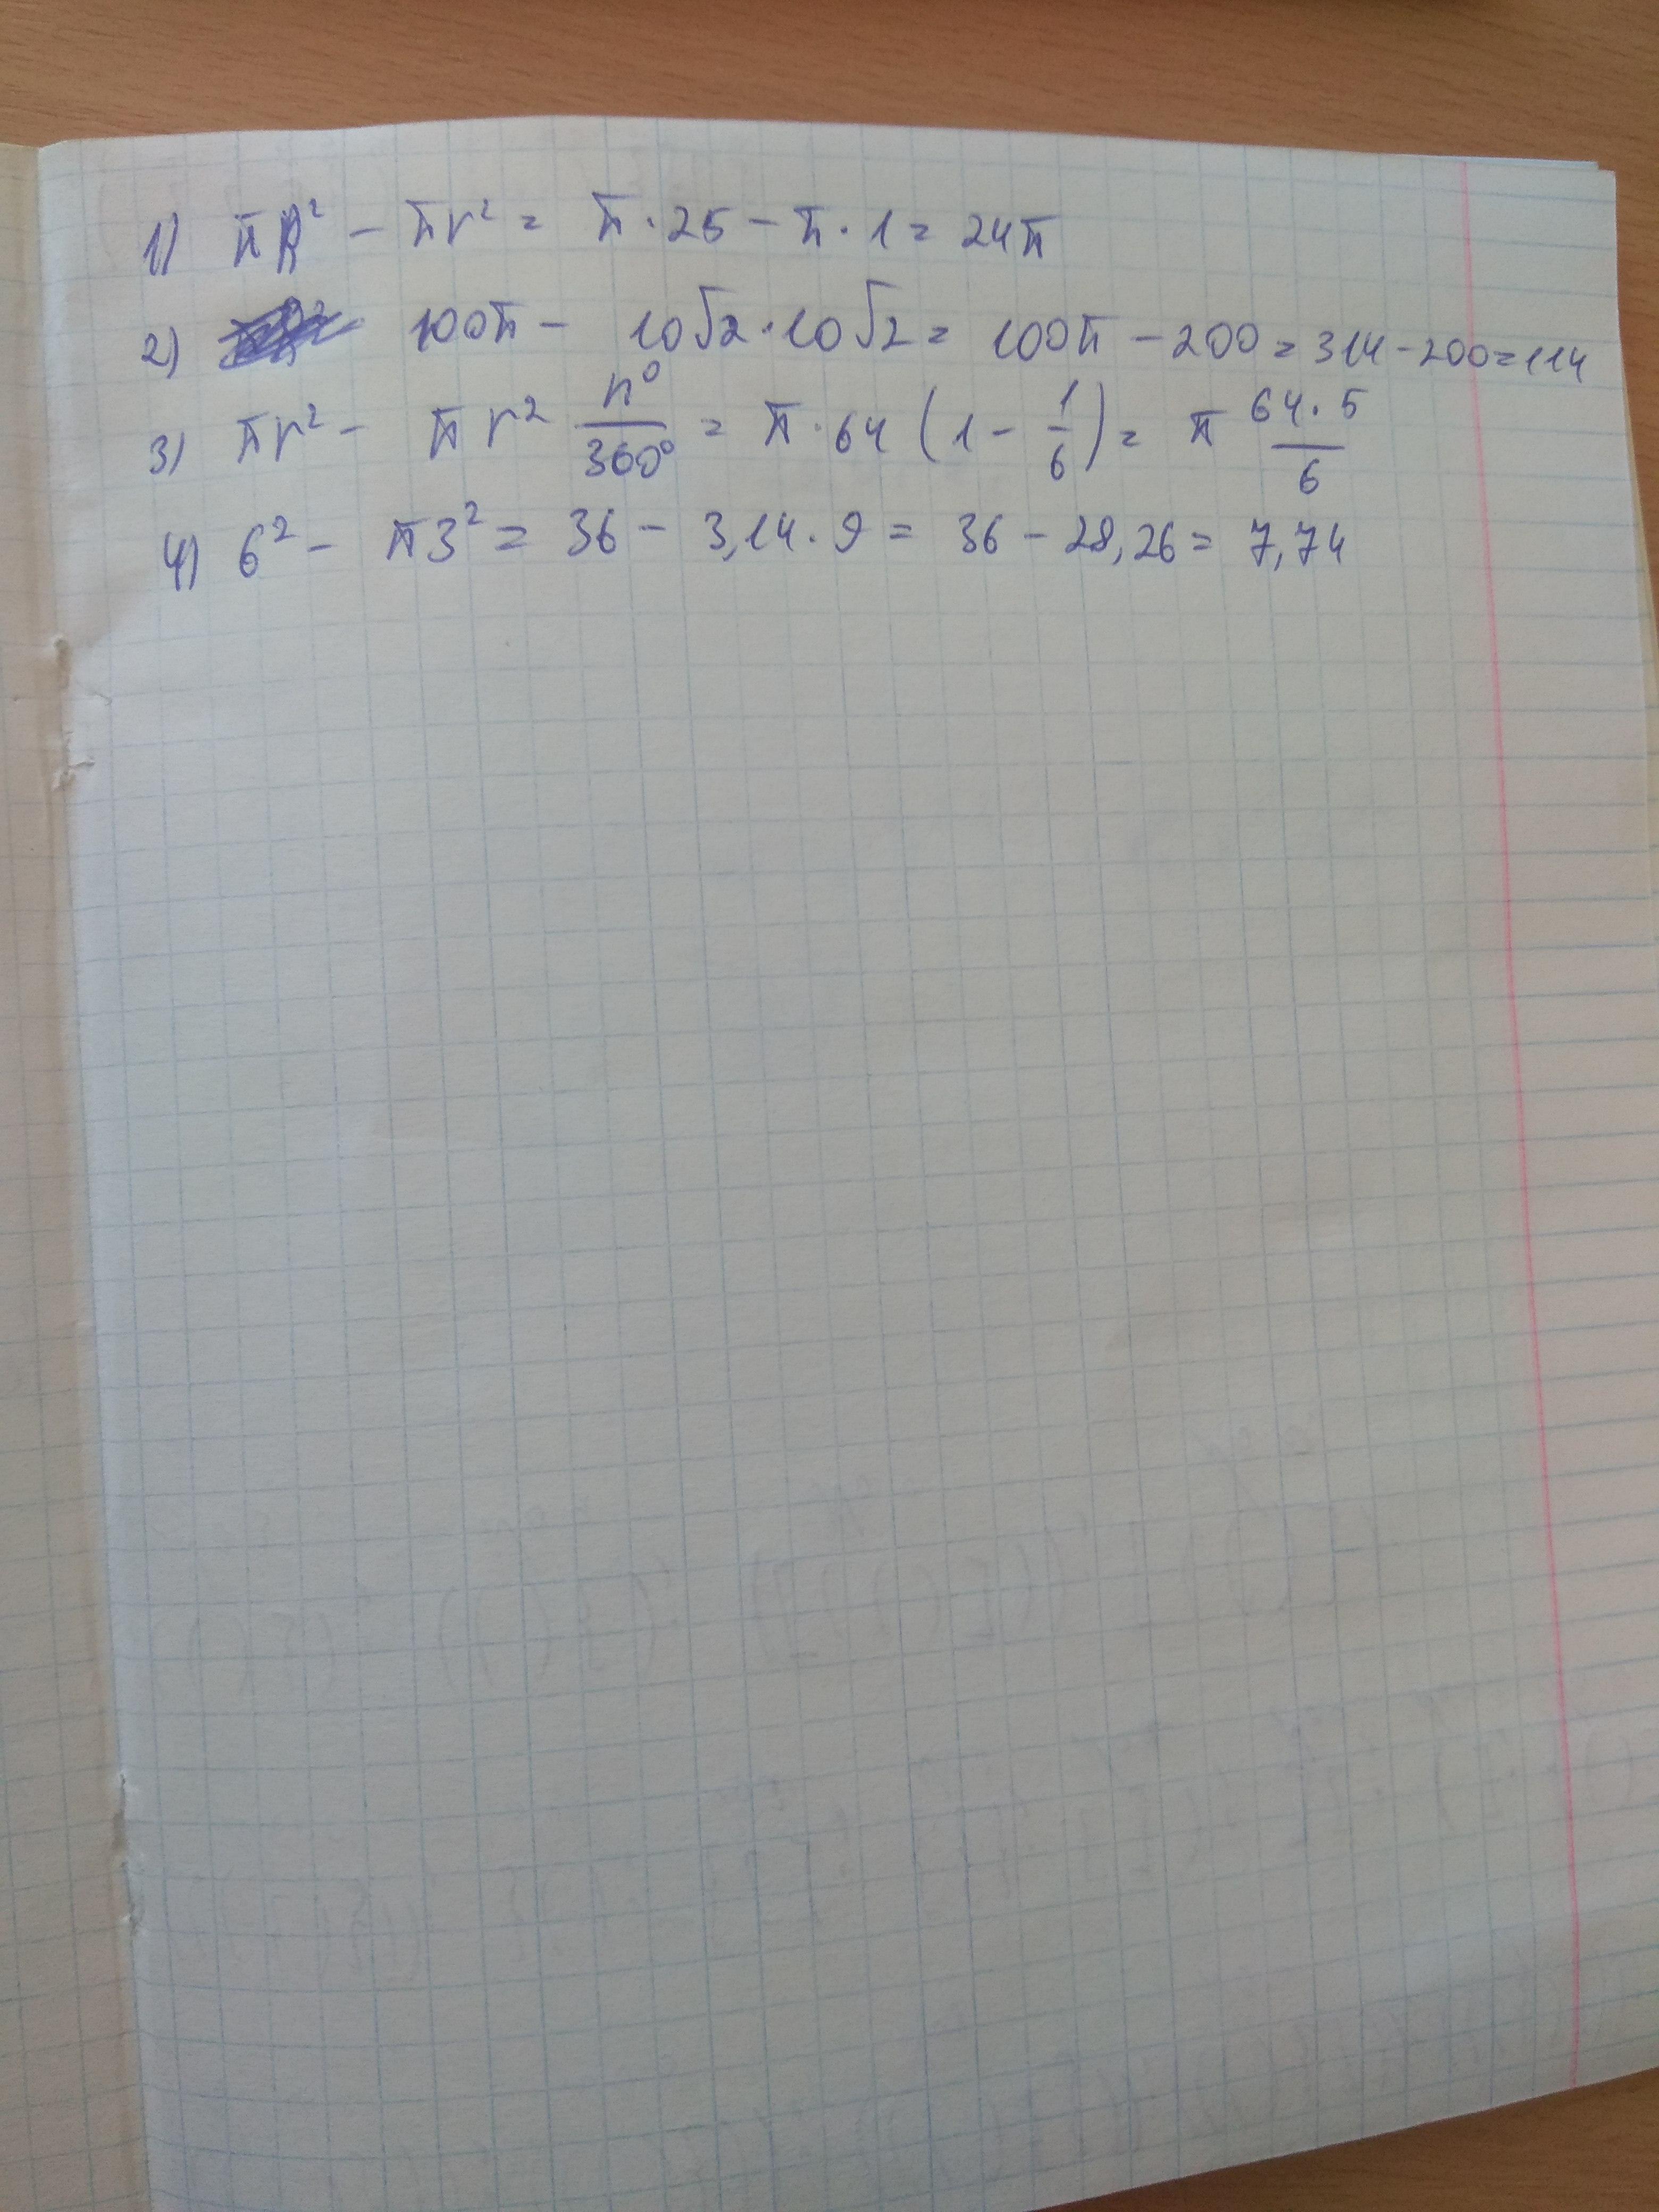 1) πR² - πr² = π·25 - π·1 = 24π
2) 100π - 10√2·10√2 = 100π - 200 = 314 - 200 = 114
3) πr² - πr² n°/360° = π·64 (1 - 1/6) = π 64·5/6
4) 6² - π3² = 36 - 3,14·9 = 36 - 28,26 = 7,74